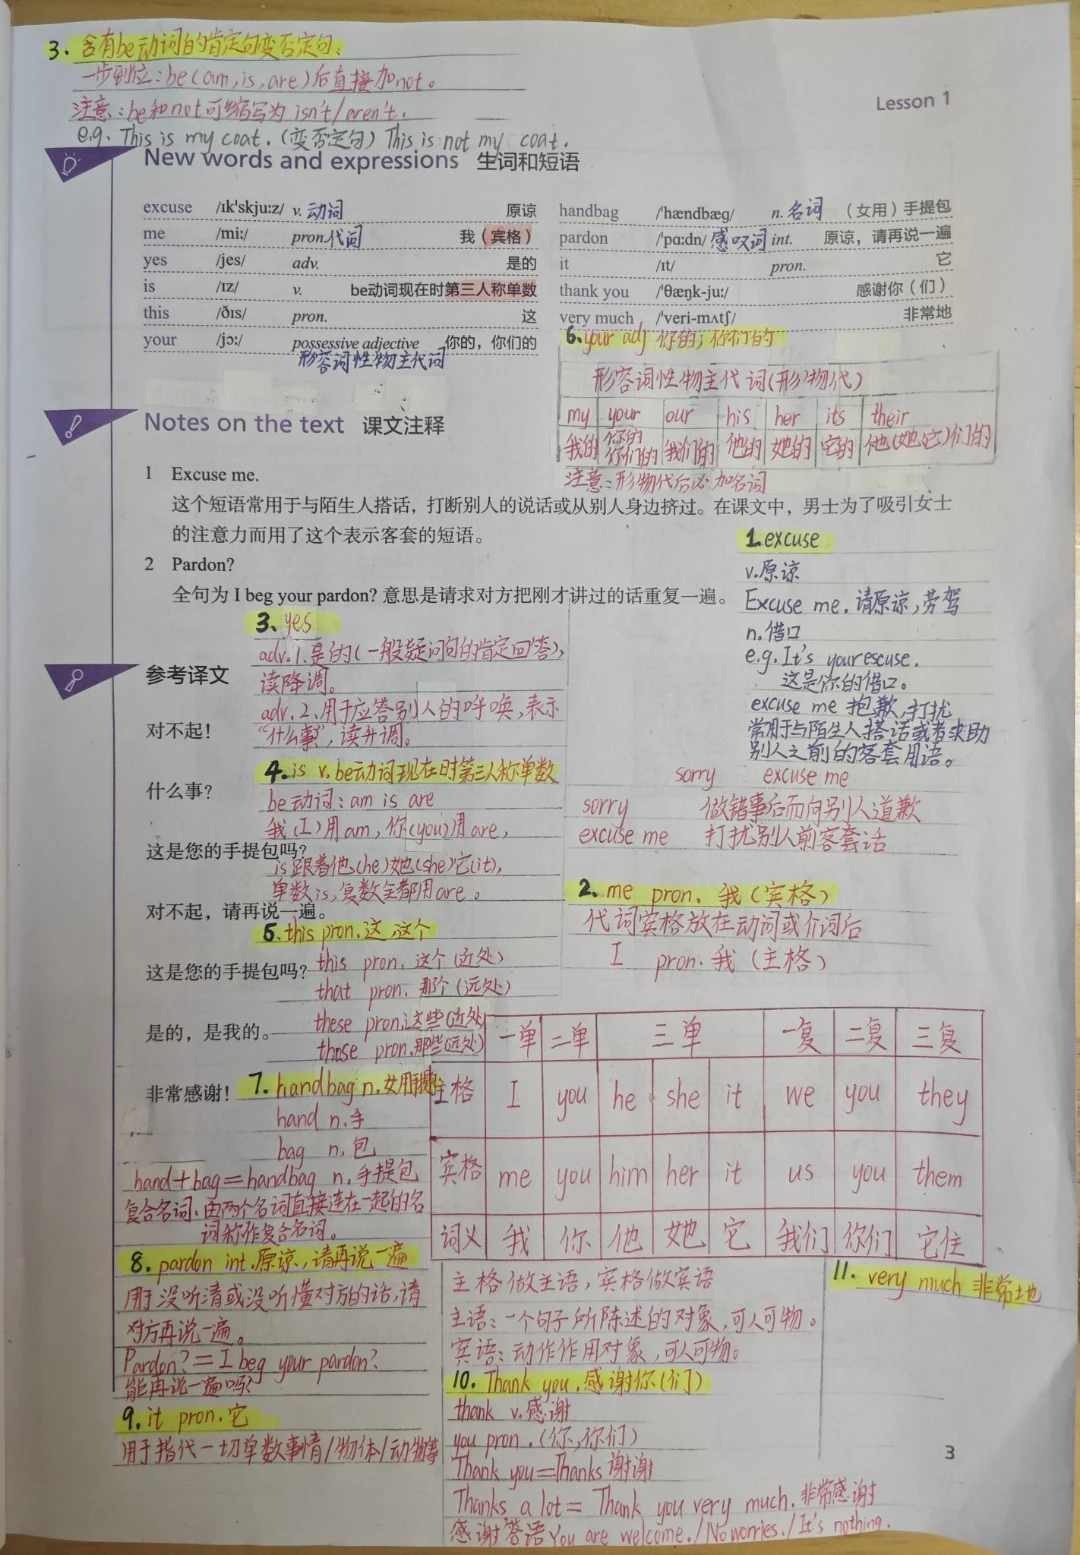 3. 含有be动词的肯定句变否定句:
一步到位:be(am,is,are)后直接加not。
注意:be和not可缩写为 isn't/aren't.
e.g. This is my coat.(变否定句) This is not my coat.
Lesson 1
New words and expressions 生词和短语
excuse /ɪk'skju:z/ v. 动词 原谅
me /mi:/ pron. 代词 我(宾格)
yes /jes/ adv. 是的
is /ɪz/ v. be动词现在时第三人称单数
this /ðɪs/ pron. 这
your /jɔ:/ possessive adjective 你的，你们的
形容词性物主代词
handbag /'hændbæg/ n. 名词 (女用)手提包
pardon /'pɑ:dn/ 感叹词 int. 原谅，请再说一遍
it /ɪt/ pron. 它
thank you /'θæŋk-ju:/ 感谢你(们)
very much /'veri-mʌtʃ/ 非常地
6. your adj 你的; 你们的
形容词性物主代词(形物代)
my your our his her its their
我的 你的 你们的 我们的 他的 她的 它的 他(她它)们的
注意:形物代后必加名词
Notes on the text 课文注释
1 Excuse me.
这个短语常用于与陌生人搭话，打断别人的说话或从别人身边挤过。在课文中，男士为了吸引女士
的注意力而用了这个表示客套的短语。
2 Pardon?
全句为 I beg your pardon? 意思是请求对方把刚才讲过的话重复一遍。
1. excuse
v.原谅
Excuse me. 请原谅,劳驾
n.借口
e.g. It's your escuse.
这是你的借口。
excuse me 抱歉,打扰
常用于与陌生人搭话或者求助
别人之前的客套用语。
sorry excuse me
sorry 做错事后而向别人道歉
excuse me 打扰别人前客套话
2. me pron. 我(宾格)
代词宾格放在动词或介词后
I pron. 我(主格)
3、yes
adv.1.是的(一般疑问句的肯定回答),
读降调。
adv.2、用于应答别人的呼唤,表示
"什么事",读升调。
4. is v. be动词现在时第三人称单数
be动词: am is are
我(I)用am,你(you)用are,
is跟着他(he)她(she)它(it),
单数is,复数全都用are。
5. this pron. 这,这个
this pron. 这个(近处)
that pron. 那个(远处)
these pron.这些(近处)
those pron.那些(远处)
参考译文
对不起!
什么事?
这是您的手提包吗?
对不起，请再说一遍。
这是您的手提包吗?
是的，是我的。
非常感谢!
7. handbag n.女用手提包
hand n.手
bag n.包
hand+bag=handbag n.手提包
复合名词、由两个名词直接连在一起的名
词称作复合名词。
8. pardon int.原谅,请再说一遍
用于没听清或没听懂对方的话,请
对方再说一遍。
Pardon?=I beg your pardon?
能再说一遍吗?
9. it pron.它
用于指代一切单数事情/物体/动物等
一单 二单 三单 一复 二复 三复
主格 I you he she it we you they
宾格 me you him her it us you them
词义 我 你 他 她 它 我们 你们 它住
主格做主语,宾格做宾语
主语:一个句子所陈述的对象,可人可物。
宾语:动作作用对象,可人可物。
10. Thank you.感谢你(们)
thank v.感谢
you pron.(你,你们)
Thank you=Thanks 谢谢
Thanks a lot= Thank you very much.非常感谢
感谢答语 You are welcome./No worries./It's nothing.
11. very much 非常地
3